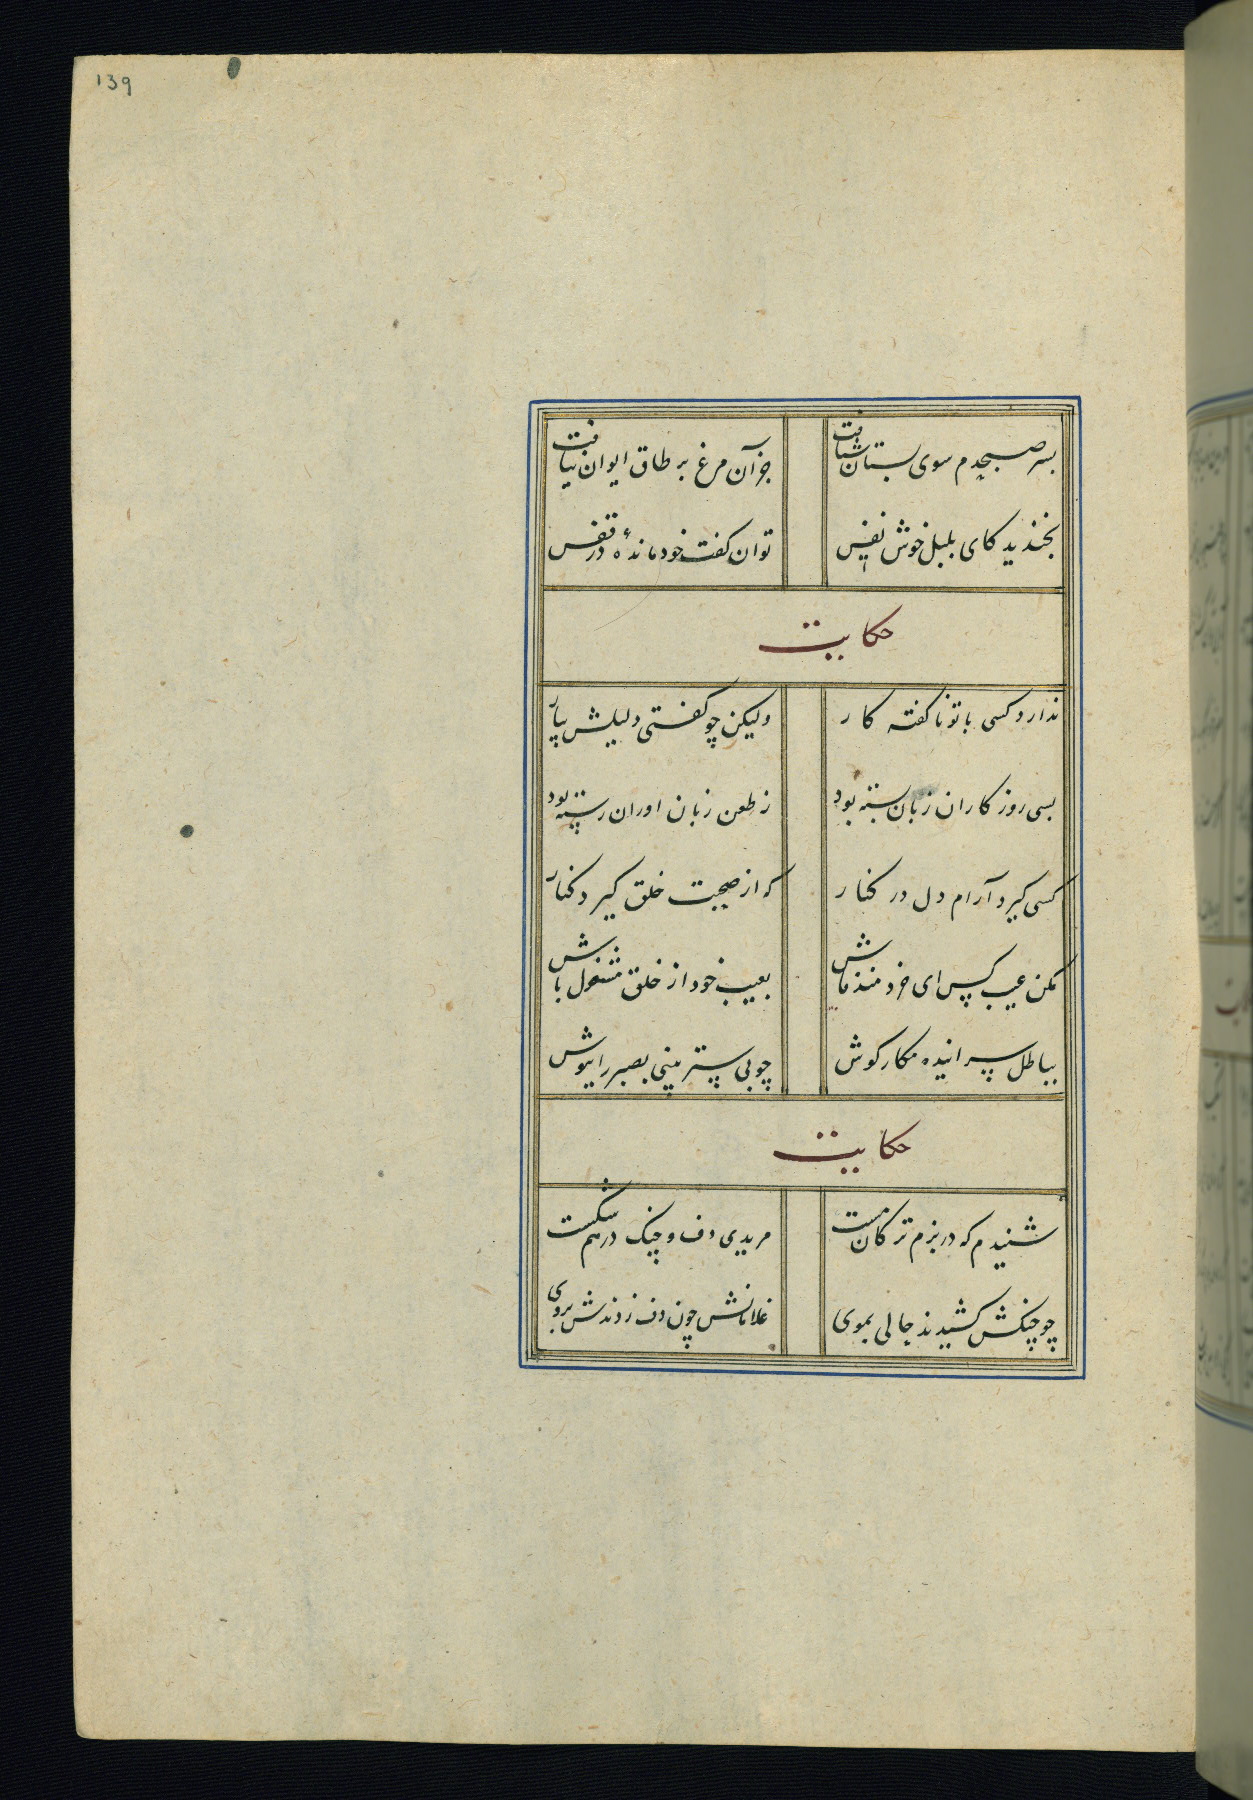 139
پسر صبحدم سوی بستان شتافت جز آن مرغ بر طاق ایوان نیافت
بخندید کای بلبل خوش نفس توان گفت خود ماندهٔ در قفس
حکایت
ندارد کسی با تو ناگفته کار ولیکن چو گفتی دلیلش بیار
بسی روزگاران زبان بسته بود ز طعن زبان اوران رسته بود
کسی گیرد آرام دل در کنار که از صحبت خلق گیرد کنار
مکن عیب کس ای خردمند فاش بعیب خود از خلق مشغول باش
بباطل سرانیده مکار گوش چو بی ستر بینی بصیرا بپوش
حکایت
شنیدم که در بزم ترکان مست مریدی دف و چنک درهم شکست
چو چنکش کشیدند حالی بموی غلامانش چون دف زدندش بروی